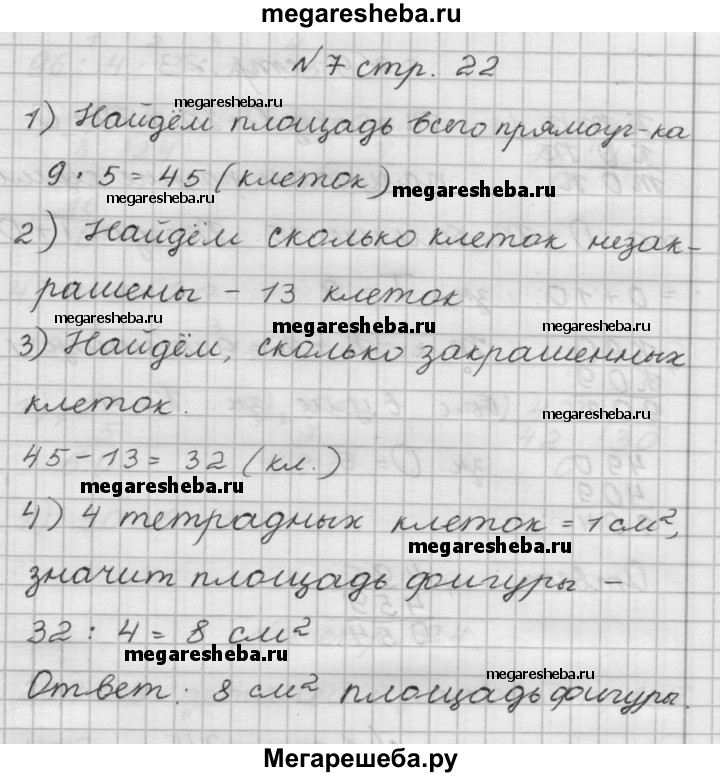 megaresheba.ru
N 7 стр. 22
megaresheba.ru
1) Найдём площадь всего прямоуг-ка
9 · 5 = 45 (клеток)
megaresheba.ru megaresheba.ru
2) Найдём сколько клеток незак-
рашены - 13 клеток
megaresheba.ru megaresheba.ru megaresheba.ru
3) Найдём, сколько закрашенных
клеток.
megaresheba.ru
45 - 13 = 32 (кл.)
megaresheba.ru
4) 4 тетрадных клеток = 1 см²,
megaresheba.ru
значит площадь фигуры -
32 : 4 = 8 см²
megaresheba.ru
megaresheba.ru
Ответ: 8 см² площадь фигуры.
Мегарешеба.ру